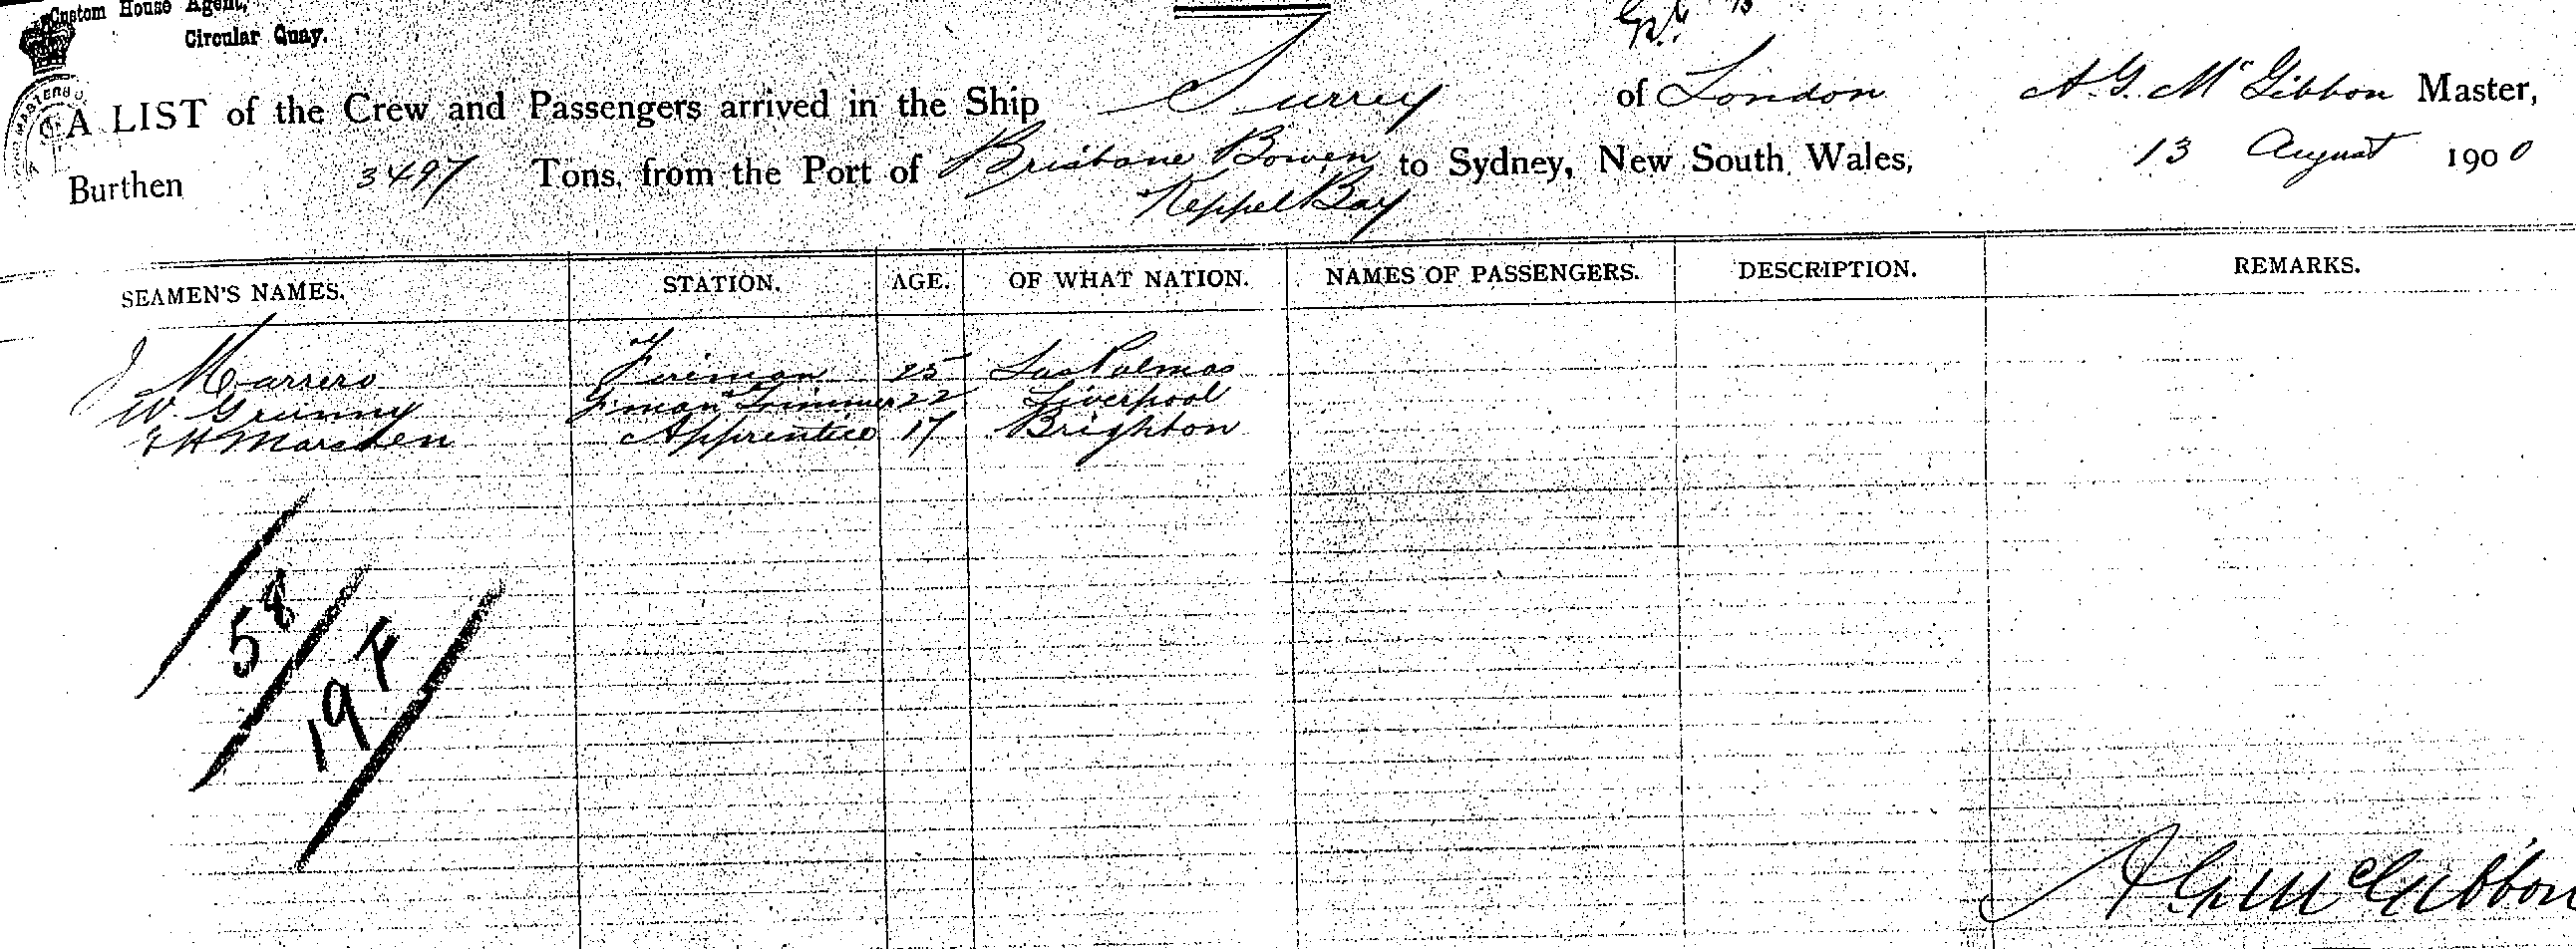 Custom House Agent,
Circular Quay.
A LIST of the Crew and Passengers arrived in the Ship Surrey of London A. G. McGibbon Master,
Burthen 3497 Tons, from the Port of Brisbane Bowen to Sydney, New South Wales, 13 August 1900
Keppel Bay
SEAMEN'S NAMES. STATION. AGE. OF WHAT NATION. NAMES OF PASSENGERS. DESCRIPTION. REMARKS.
J Marrero Fireman 25 Las Palmas
W. Grunny F'man & Trimmer 22 Liverpool
H Marsden Apprentice 17 Brighton
58
19 F
A G McGibbon